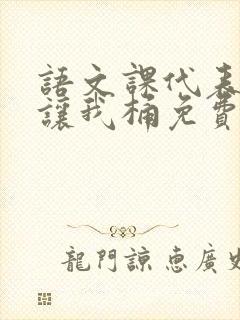 語文課代表
讓我桶免費
龍門諒惠廣